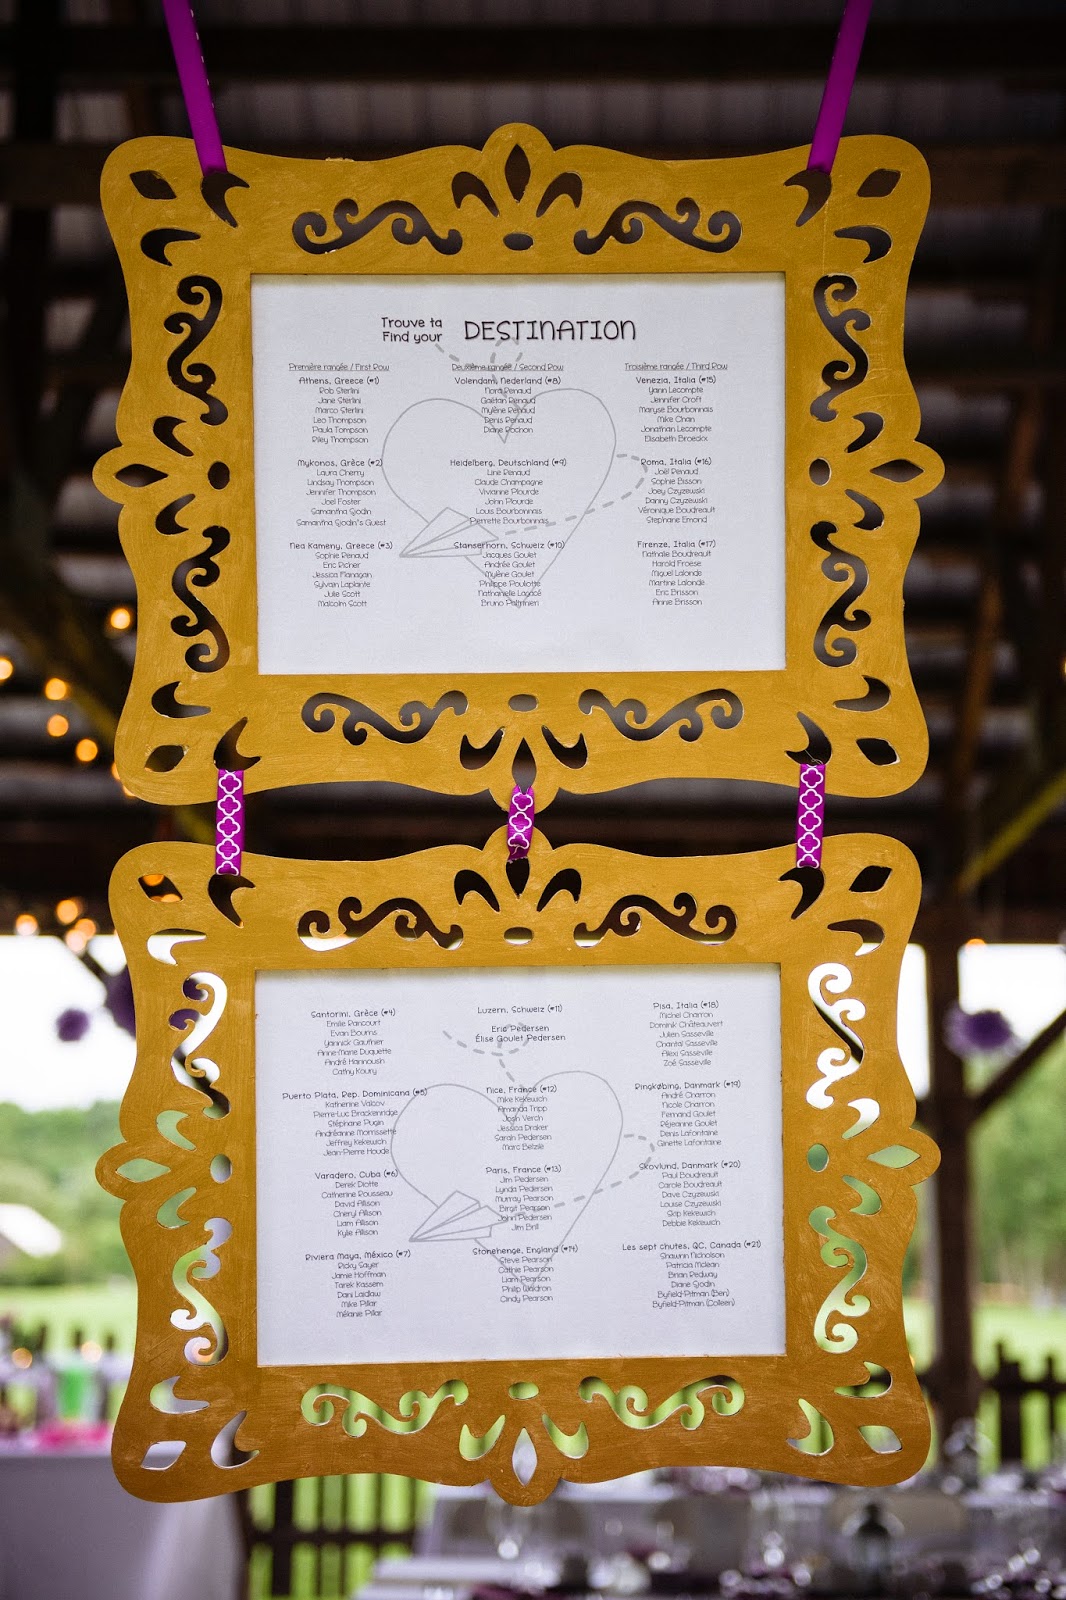 Trouve ta
Find your
DESTINATION
Première rangée / First Row
Athens, Greece (#1)
Rob Sterlini
Jane Sterlini
Marco Sterlini
Leo Thompson
Paula Tompson
Riley Thompson
Mykonos, Grèce (#2)
Laura Cherry
Lindsay Thompson
Jennifer Thompson
Joel Foster
Samantha Sjodin
Samantha Sjodin's Guest
Nea Kameny, Greece (#3)
Sophie Renaud
Eric Richer
Jessica Flanagan
Sylvain Laplante
Julie Scott
Malcolm Scott
Deuxième rangée / Second Row
Volendam, Nederland (#8)
Nora Renaud
Gaëtan Renaud
Mylène Renaud
Denis Renaud
Diane Rochon
Heidelberg, Deutschland (#9)
Line Renaud
Claude Champagne
Vivianne Plourde
John Plourde
Louis Bourbonnais
Pierrette Bourbonnais
Stanserhorn, Schweiz (#10)
Jacques Goulet
Andrée Goulet
Mylène Goulet
Philippe Pouliotte
Nathanielle Lagacé
Bruno
Troisième rangée / Third Row
Venezia, Italia (#15)
Yann Lecompte
Jennifer Croft
Maryse Bourbonnais
Mike Chan
Jonathan Lecompte
Elisabeth Broeckx
Roma, Italia (#16)
Joël Renaud
Sophie Bisson
Joey Czyzewski
Danny Czyzewski
Véronique Boudreault
Stephane Emond
Firenze, Italia (#17)
Nathalie Boudreault
Harold Froese
Miguel Lalonde
Martine Lalonde
Eric Brisson
Annie Brisson
Santorini, Grèce (#4)
Emilie Rancourt
Evan Bourns
Yannick Gauthier
Anne-Marie Duquette
André Hannoush
Cathy Koury
Puerto Plata, Rep. Dominicana (#5)
Katherine Valcov
Pierre-Luc Brackenridge
Stéphane Pugin
Andréanne Morrissette
Jeffrey Kekewich
Jean-Pierre Houde
Varadero, Cuba (#6)
Derek Diotte
Catherine Rousseau
David Allison
Cheryl Allison
Liam Allison
Kylie Allison
Riviera Maya, México (#7)
Ricky Sayer
Jamie Hoffman
Tarek Kassem
Dani Laidlaw
Mike Pillar
Mélanie Pillar
Luzern, Schweiz (#11)
Eric Pedersen
Élise Goulet Pedersen
Nice, France (#12)
Mike Kekewich
Amanda Tripp
Josh Verch
Jessica Draker
Sarah Pedersen
Marc Belzile
Paris, France (#13)
Jim Pedersen
Lynda Pedersen
Murray Pearson
Birgit Pearson
John Pedersen
Jim Brill
Stonehenge, England (#14)
Steve Pearson
Cathie Pearson
Liam Pearson
Philip Waldron
Cindy Pearson
Pisa, Italia (#18)
Michel Charron
Dominik Châteauvert
Julien Sasseville
Chantal Sasseville
Alexi Sasseville
Zoé Sasseville
Ringkøbing, Danmark (#19)
André Charron
Nicole Charron
Fernand Goulet
Réjeanne Goulet
Denis Lafontaine
Ginette Lafontaine
Skovlund, Danmark (#20)
Paul Boudreault
Carole Boudreault
Dave Czyzewski
Louise Czyzewski
Skip Kekewich
Debbie Kekewich
Les sept chutes, QC, Canada (#21)
Shawn Nicholson
Patricia Mclean
Brian Redway
Diane Sjodin
Byfield-Pitman (Ben)
Byfield-Pitman (Colleen)